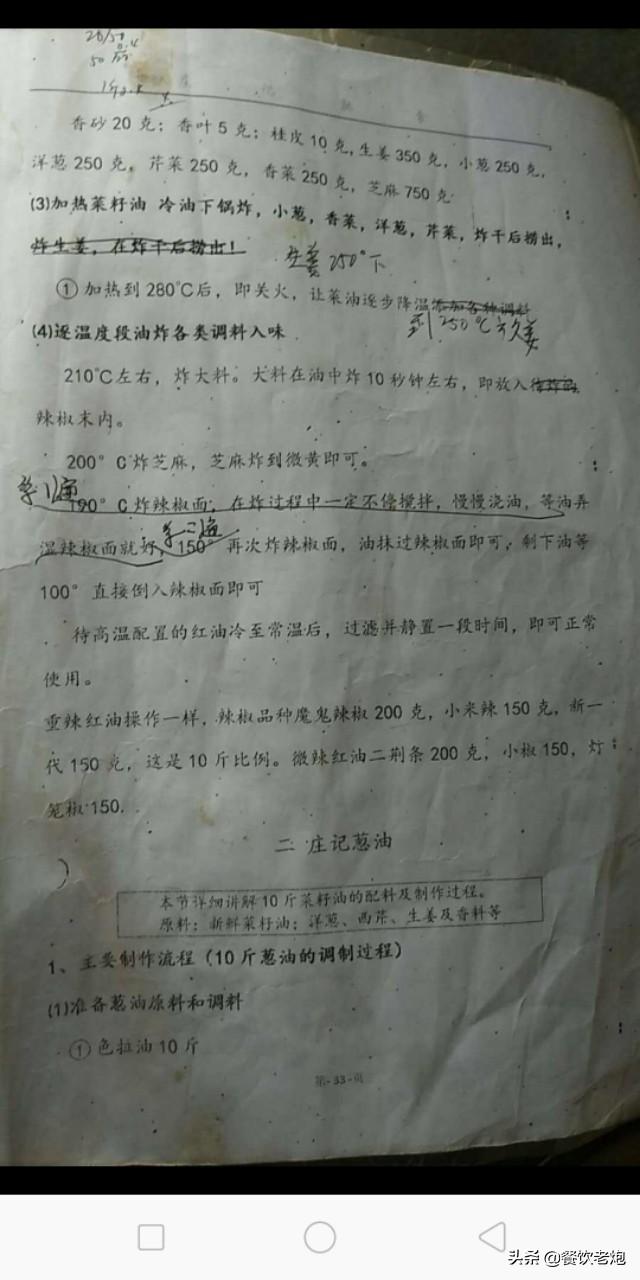 28/50
50
香砂20克；香叶5克；桂皮10克，生姜350克，小葱250克，
洋葱250克，芹菜250克，香菜250克，芝麻750克
(3)加热菜籽油 冷油下锅炸，小葱，香菜，洋葱，芹菜，炸干后捞出，
炸生姜，在炸干后捞出！
生姜250°下
①加热到280℃后，即关火，让菜油逐步降温添加各种调料
到250℃方姜
(4)逐温度段油炸各类调料入味
210℃左右，炸大料。大料在油中炸10秒钟左右，即放入
辣椒末内。
200°C炸芝麻，芝麻炸到微黄即可。
第1遍
190°C炸辣椒面；在炸过程中一定不停搅拌，慢慢浇油，等油弄
第二遍
温辣椒面就好，150°再次炸辣椒面，油抹过辣椒面即可，剩下油等
100°直接倒入辣椒面即可
待高温配置的红油冷至常温后，过滤并静置一段时间，即可正常
使用。
重辣红油操作一样，辣椒品种魔鬼辣椒200克，小米辣150克，新一
代150克，这是10斤比例。微辣红油二荆条200克，小椒150，灯
笼椒150.
二 庄记葱油
本节详细讲解10斤菜籽油的配料及制作过程。
原料：新鲜菜籽油；洋葱、西芹、生姜及香料等
1、主要制作流程（10斤葱油的调制过程）
(1)准备葱油原料和调料
①色拉油10斤
第-33-页
头条 @餐饮老炮